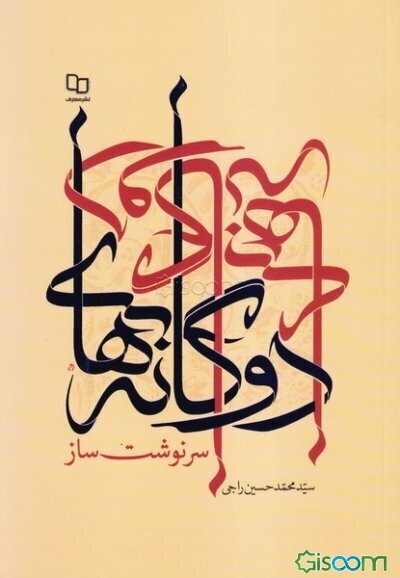 نشر معارف
دوگانه‌های
سرنوشت ساز
سیّد محمّد حسین راجی
Gisoom
Gisoom